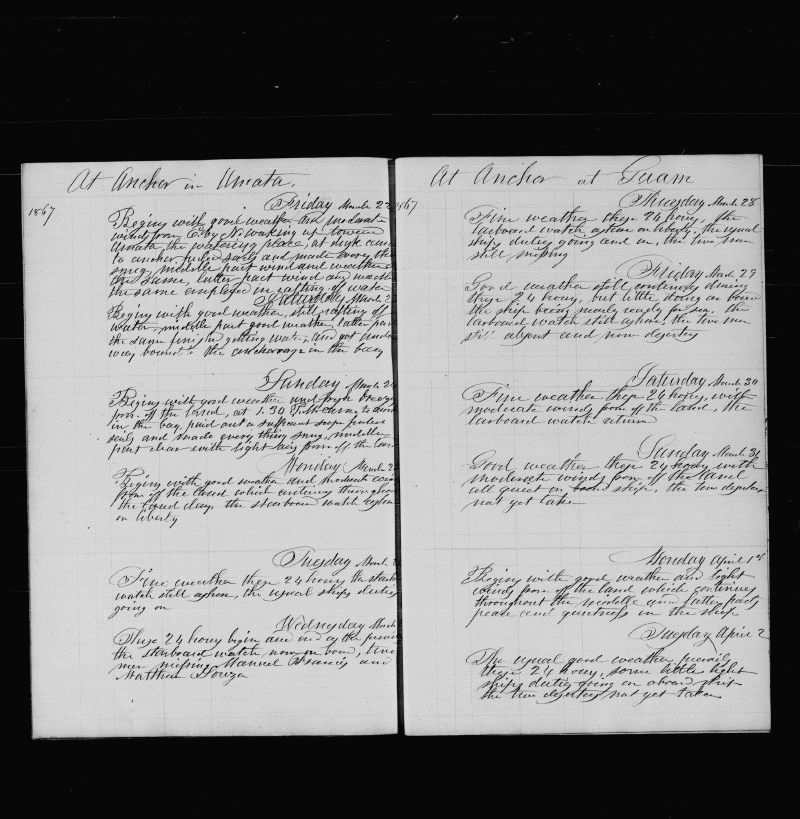 At Anchor in Umata.
1867
Friday March 22
Begins with good weather and moderate
winds from E. by N. working up toward
Umata the watering place, at dusk came
to anchor furled sails and made every thing
snug, middle part wind and weather
the same, latter part wind and weather
the same employed in rafting off water
Saturday March 2
Begins with good weather, still rafting off
water, middle part good weather, latter part
the same finished getting water, and got under
way bound to the anchorage in the bay
Sunday March 24
Begins with good weather and fresh breezes
from off the land, at 1.30 P.M. came to anchor
in the bay, paid out a sufficient scope furled
sails and made every thing snug, middle
part clear with light airs from off the land
Monday March 2
Begins with good weather and moderate
from off the land which continue throughout
the day, the starboard watch ashore
on liberty
Tuesday March 2
Fine weather these 24 hours the starboard
watch still ashore, the usual ships duties
going on
Wednesday March
These 24 hours begin and end as the previous
the starboard watch now on board, two
men missing Manuel Francis and
Matthew Sowza
At Anchor at Guam
1867
Thursday March 28
Fine weather these 24 hours, the
larboard watch ashore on liberty, the usual
ships duties going on, the two men
still missing
Friday March 29
Good weather still continues during
these 24 hours, but little doing on board
the ship being nearly ready for sea the
larboard watch still ashore, the two men
still absent and now deserters
Saturday March 30
Fine weather these 24 hours, with
moderate winds from off the land, the
larboard watch return
Sunday March 31
Good weather these 24 hours with
moderate winds from off the land
all quiet on board ship, the two deserters
not yet taken
Monday April 1st
Begins with good weather and light
winds from off the land which continues
throughout the middle and latter parts
peace and quietness in the ship
Tuesday April 2
The usual good weather prevails
these 24 hours, some little light
ships duties going on aboard ship
the two deserters not yet taken